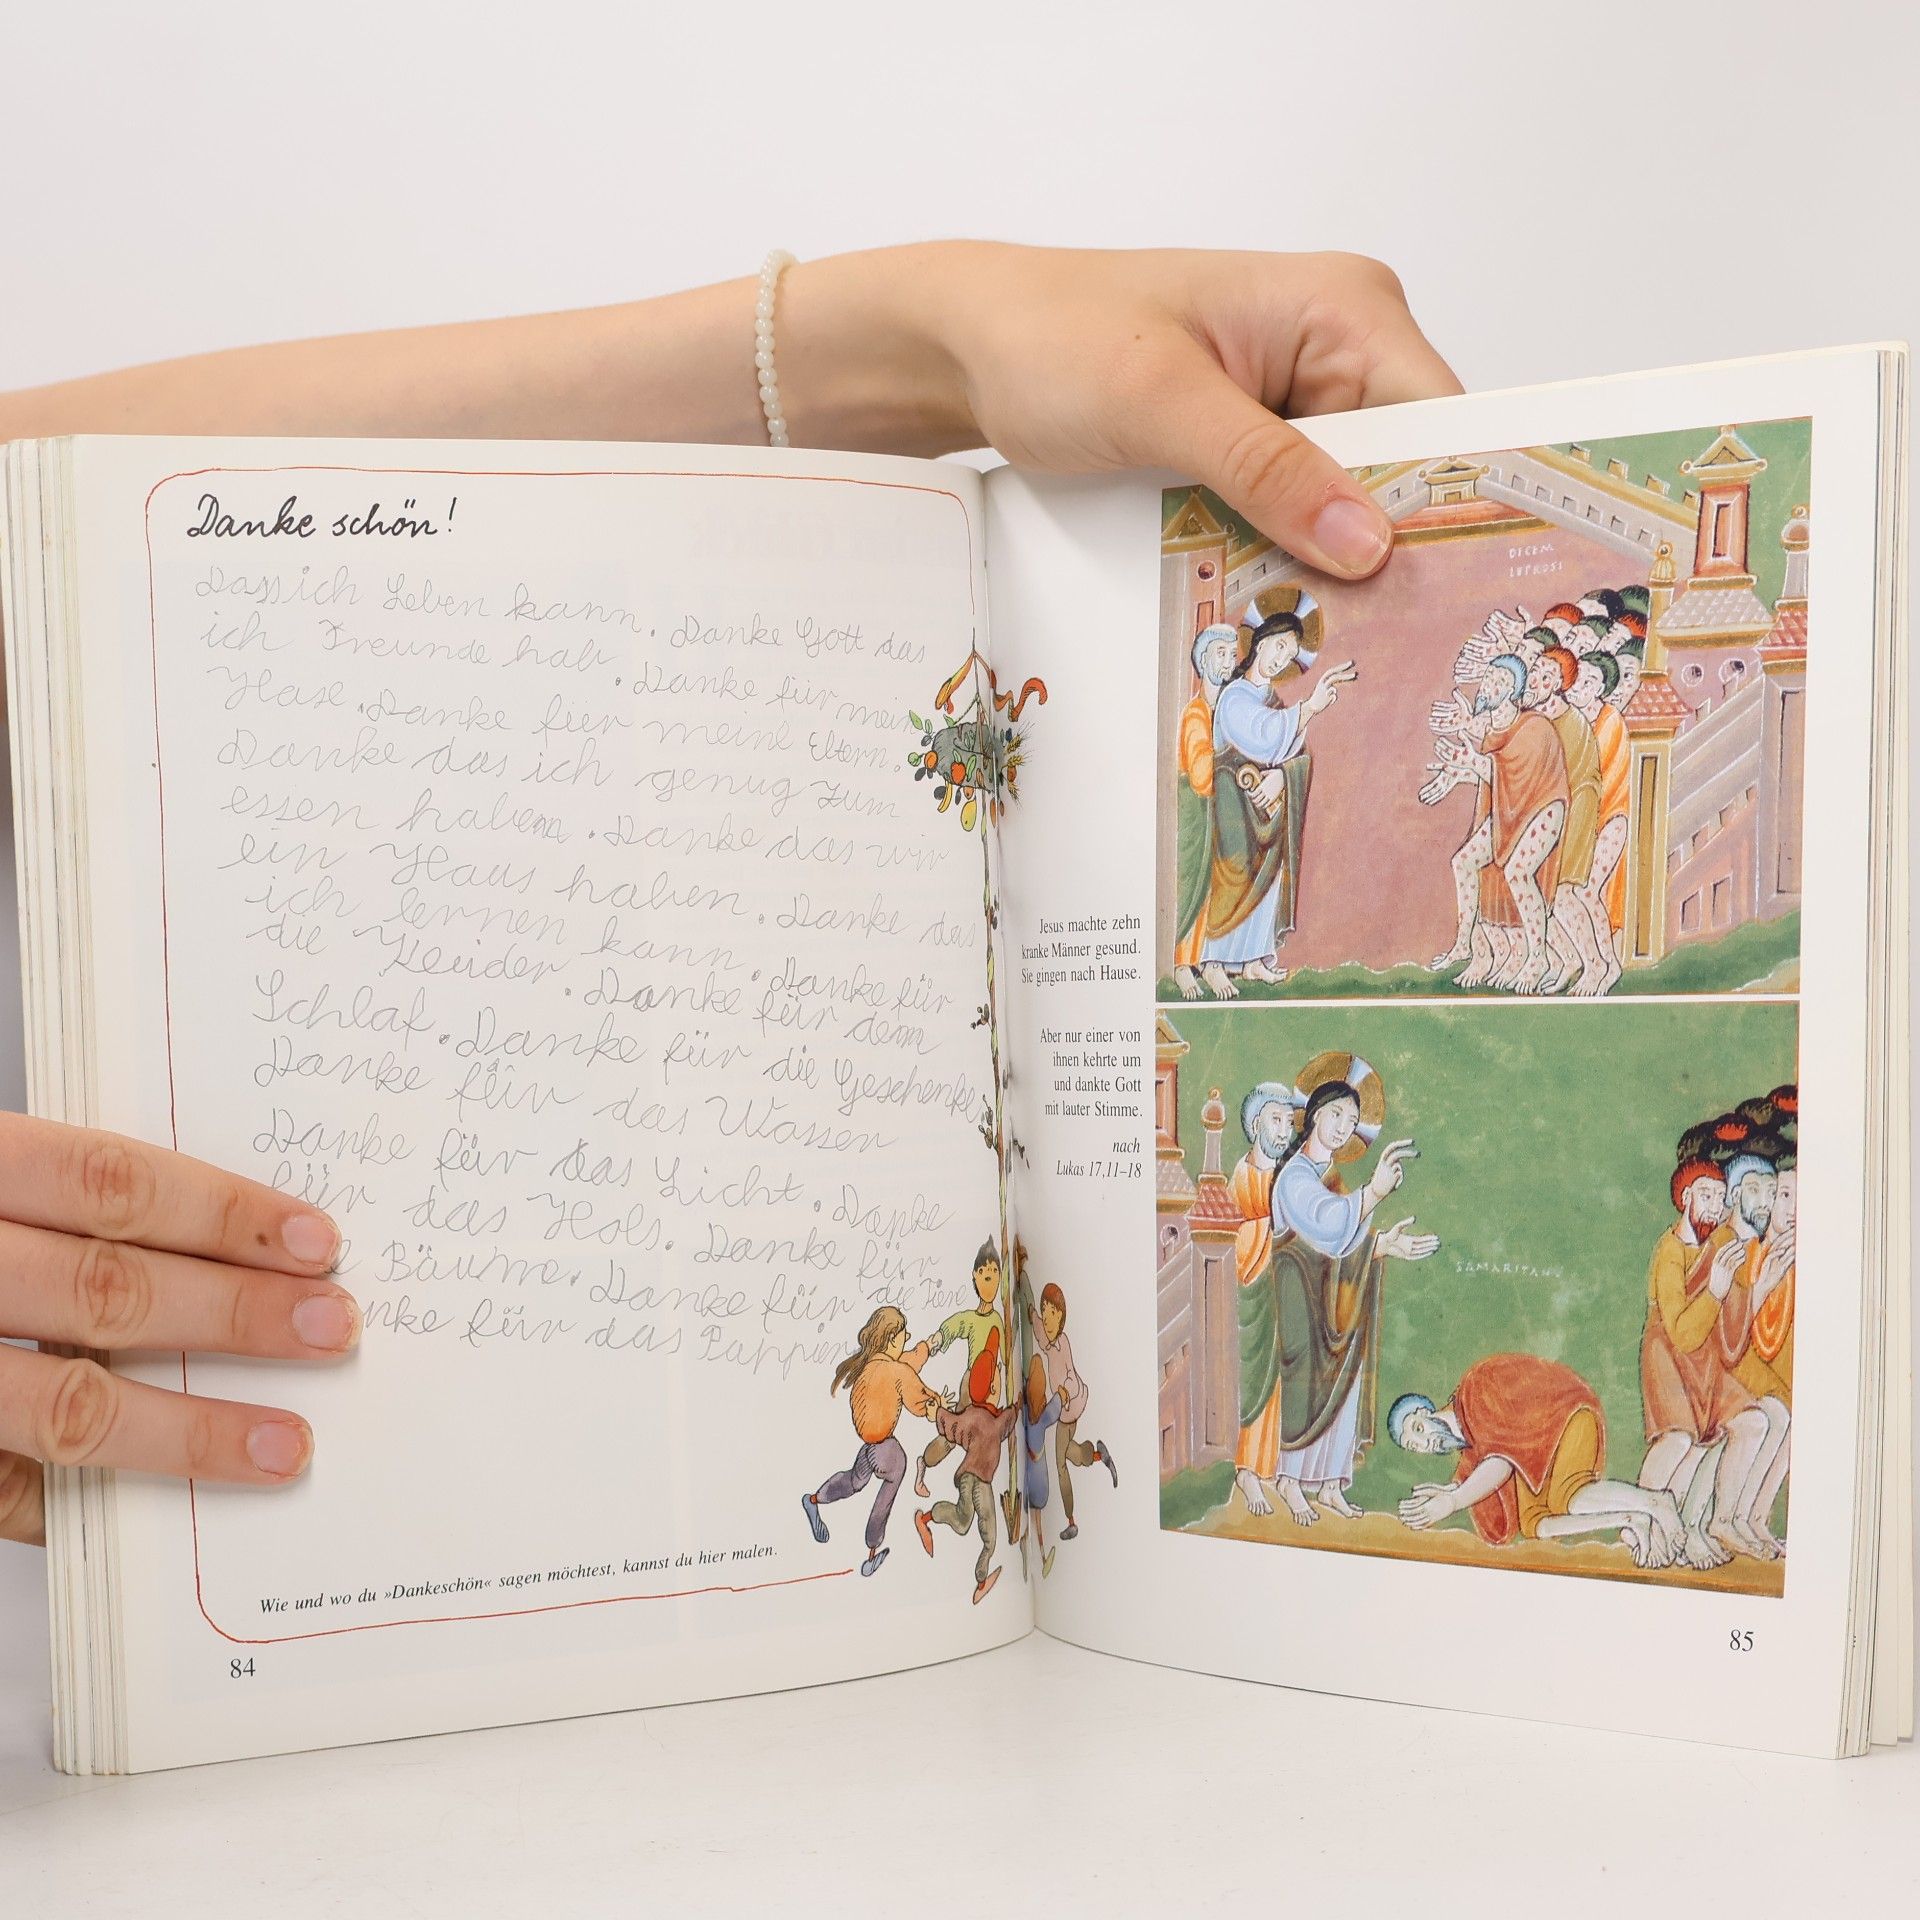 Danke schön!
Dass ich Leben kann. Danke Gott das
ich Freunde hab. Danke für mein
Hase. Danke für meine Eltern.
Danke das ich genug zum
essen haben. Danke das wir
ein Haus haben. Danke das
ich lernen kann. Danke für
die Kleider. Danke für dem
Schlaf. Danke für die Geschenke.
Danke für das Wasser
Danke für das Licht. Danke
für das Hols. Danke für
Bäume. Danke für die Tiere
für das Pappier
Wie und wo du »Dankeschön« sagen möchtest, kannst du hier malen.
84
DECEM
LEPROSI
Jesus machte zehn
kranke Männer gesund.
Sie gingen nach Hause.
Aber nur einer von
ihnen kehrte um
und dankte Gott
mit lauter Stimme.
nach
Lukas 17,11–18
SAMARITANUS
85